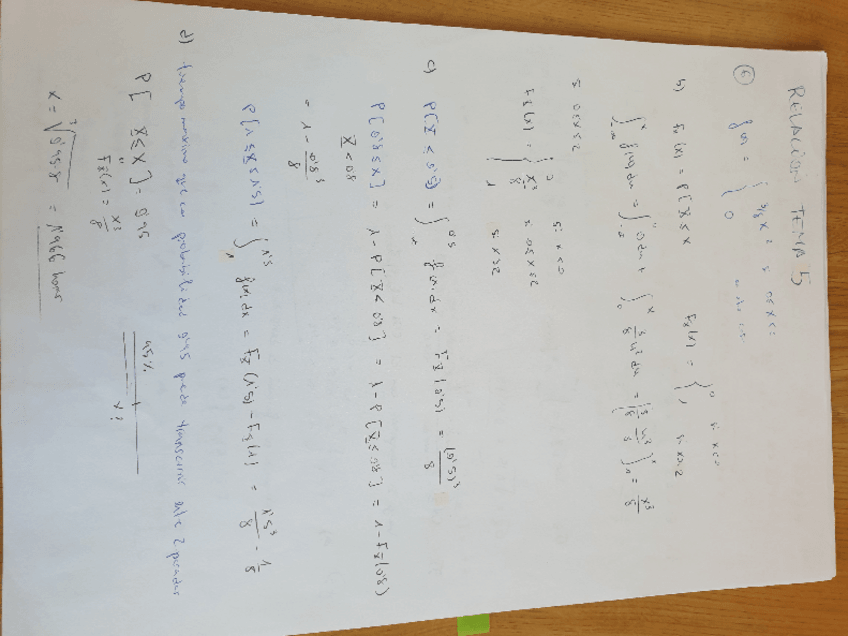 RELACIÓN TEMA 5
⑥ f(x) = { 3/8 x² si 0≤x≤2
0
b) F_X(x) = P[X ≤ x F_X(x) = { 0 si x<0
1 si x≥2
∫_{-∞}^x f(u) du = ∫_{-∞}^0 0 du + ∫_0^x 3/8 u² du = [3/8 u³/3]_0^x = x³/8
si 0≤x<2
F_X(x) = { 0 si x<0
x³/8 si 0≤x<2
1 si x≥2
c) P[X < 0'5] = ∫_{-∞}^{0'5} f(x) dx = F_X(0'5) = (0'5)³/8
P[0'8 ≤ X] = 1 - P[X < 0'8] = 1 - P[X ≤ 0'8] = 1 - F_X(0'8)
X < 0'8
= 1 - 0'8³/8
P[1 ≤ X ≤ 1'5] = ∫_1^{1'5} f(x) dx = F_X(1'5) - F_X(1) = 1'5³/8 - 1/8
d) tiempo máximo que con probabilidad 0'95 puede transcurrir entre 2 picadas
P[X ≤ x] = 0'95
F_X(x) = x³/8
95%
x?
x = ³√0'95·8 = 1'966 horas